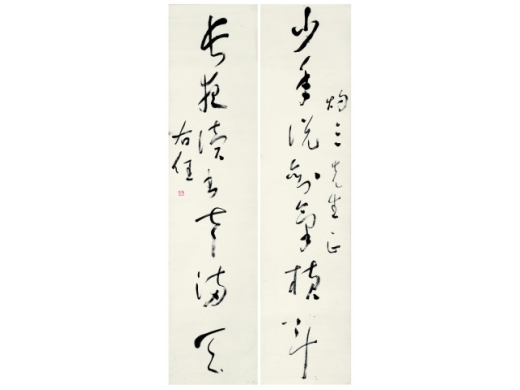 灼三先生正
少年說劍氣橫斗
長夜讀書聲滿天
右任